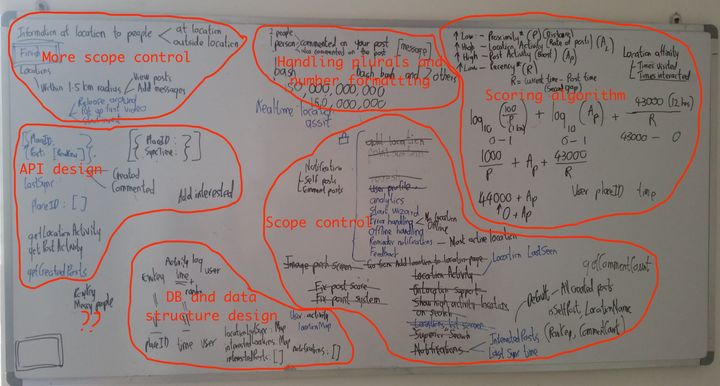 Information at location to people
at location
outside location
Finish
More scope control
Locations
Within 1.5 km radius
View posts
Add messages
Release around
Put up fast video
7 people
person, commented on your post
also commented on the post
[message]
Handling plurals and number formatting
bash
bash, bash and 2 others
50,000,000,000
150,000,000
Realtime location
assit
↑ Low :- Proximity* (P) (Distance)
↑ High :- Location Activity (Rate of posts) (AL)
↑ High :- Post Activity (Boost) (Ap)
↑ Low :- Recency* (R)
R = Current time - Post time
(second gap)
Location affinity
Times visited
Times interacted
Scoring algorithm
log10 (100/P) + log10 (Ap) + 43000 (12 hrs)/R
0-1
0-1
43000 - 0
1000/P + Ap + 43000/R
44000 + Ap
↑ 0 + Ap
User placeID time
{PlaceID:
Posts: [RowKey] },
[ { PlaceID :
SyncTime : } ]
API design
lastSync
Created
Commented
Add interested
PlaceID : [ ]
getLocationActivity
get Post Activity
getCreatedPosts
Notification
Self posts
Comment posts
add location
Scope control
User profile
analytics
Start wizard
Error handling
No location
Offline
Offline handling
Reminder notifications - Most active location
Feedback
Image post screen
Go from Add location to location page
Location Activity
Location LastSeen
Fix post score
Fix point system
Show high activity locations
on search
Locations list screen
Superior Search
Notifications
Interested Posts
Last Sync time
getCommentCount
Default - All Created posts
inSelfPost, LocationName
(RowKey, CommentCount)
RowKey
Many people
??
Activity log
RowKey
time
user
DB and data structure design
placeID time user
User activity
locationMap
locationLastSync : Map
interestedLocations : Map
interestedPosts : [ ]
Notifications : [ ]